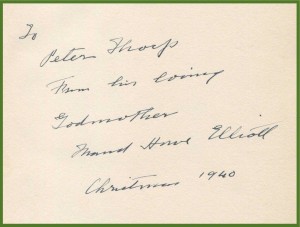 To
Peter Thorp
From his loving
Godmother
Maud Howe Elliott
Christmas 1940